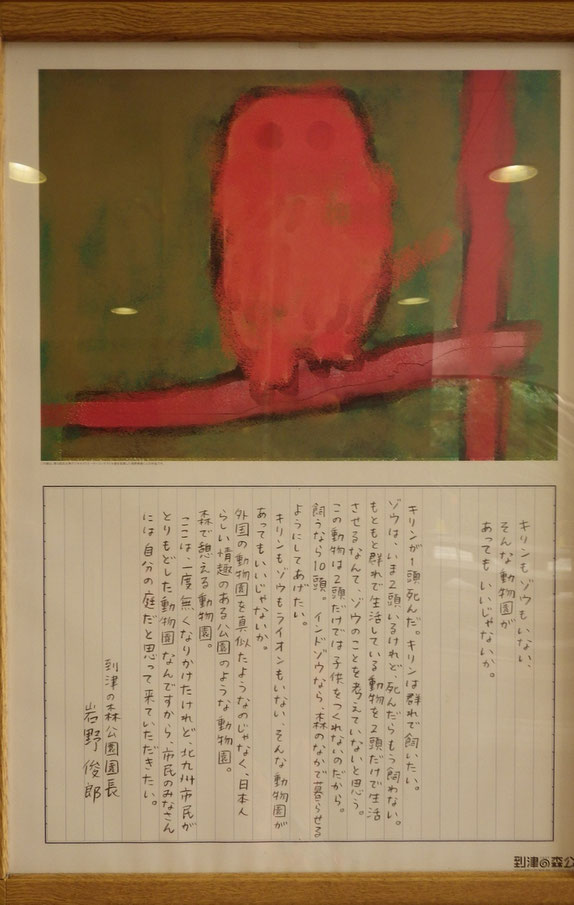 キリンもゾウもいない、
そんな動物園が
あってもいいじゃないか。
キリンが1頭死んだ。キリンは群れで飼いたい。
ゾウは、いま2頭いるけれど、死んだらもう飼わない。
もともと群れで生活している動物を2頭だけで生活
させるなんて、ゾウのことを考えていないと思う。
この動物は2頭だけでは子供をつくれないのだから。
飼うなら10頭。インドゾウなら、森のなかで暮らせる
ようにしてあげたい。
キリンもゾウもライオンもいない、そんな動物園が
あってもいいじゃないか。
外国の動物園を真似たようなのじゃなく、日本人
らしい情趣のある公園のような動物園。
森で憩える動物園。
ここは、一度無くなりかけたけれど、北九州市民が
とりもどした動物園なんですから、市民のみなさん
には自分の庭だと思って来ていただきたい。
到津の森公園園長
岩野俊郎
到津の森公